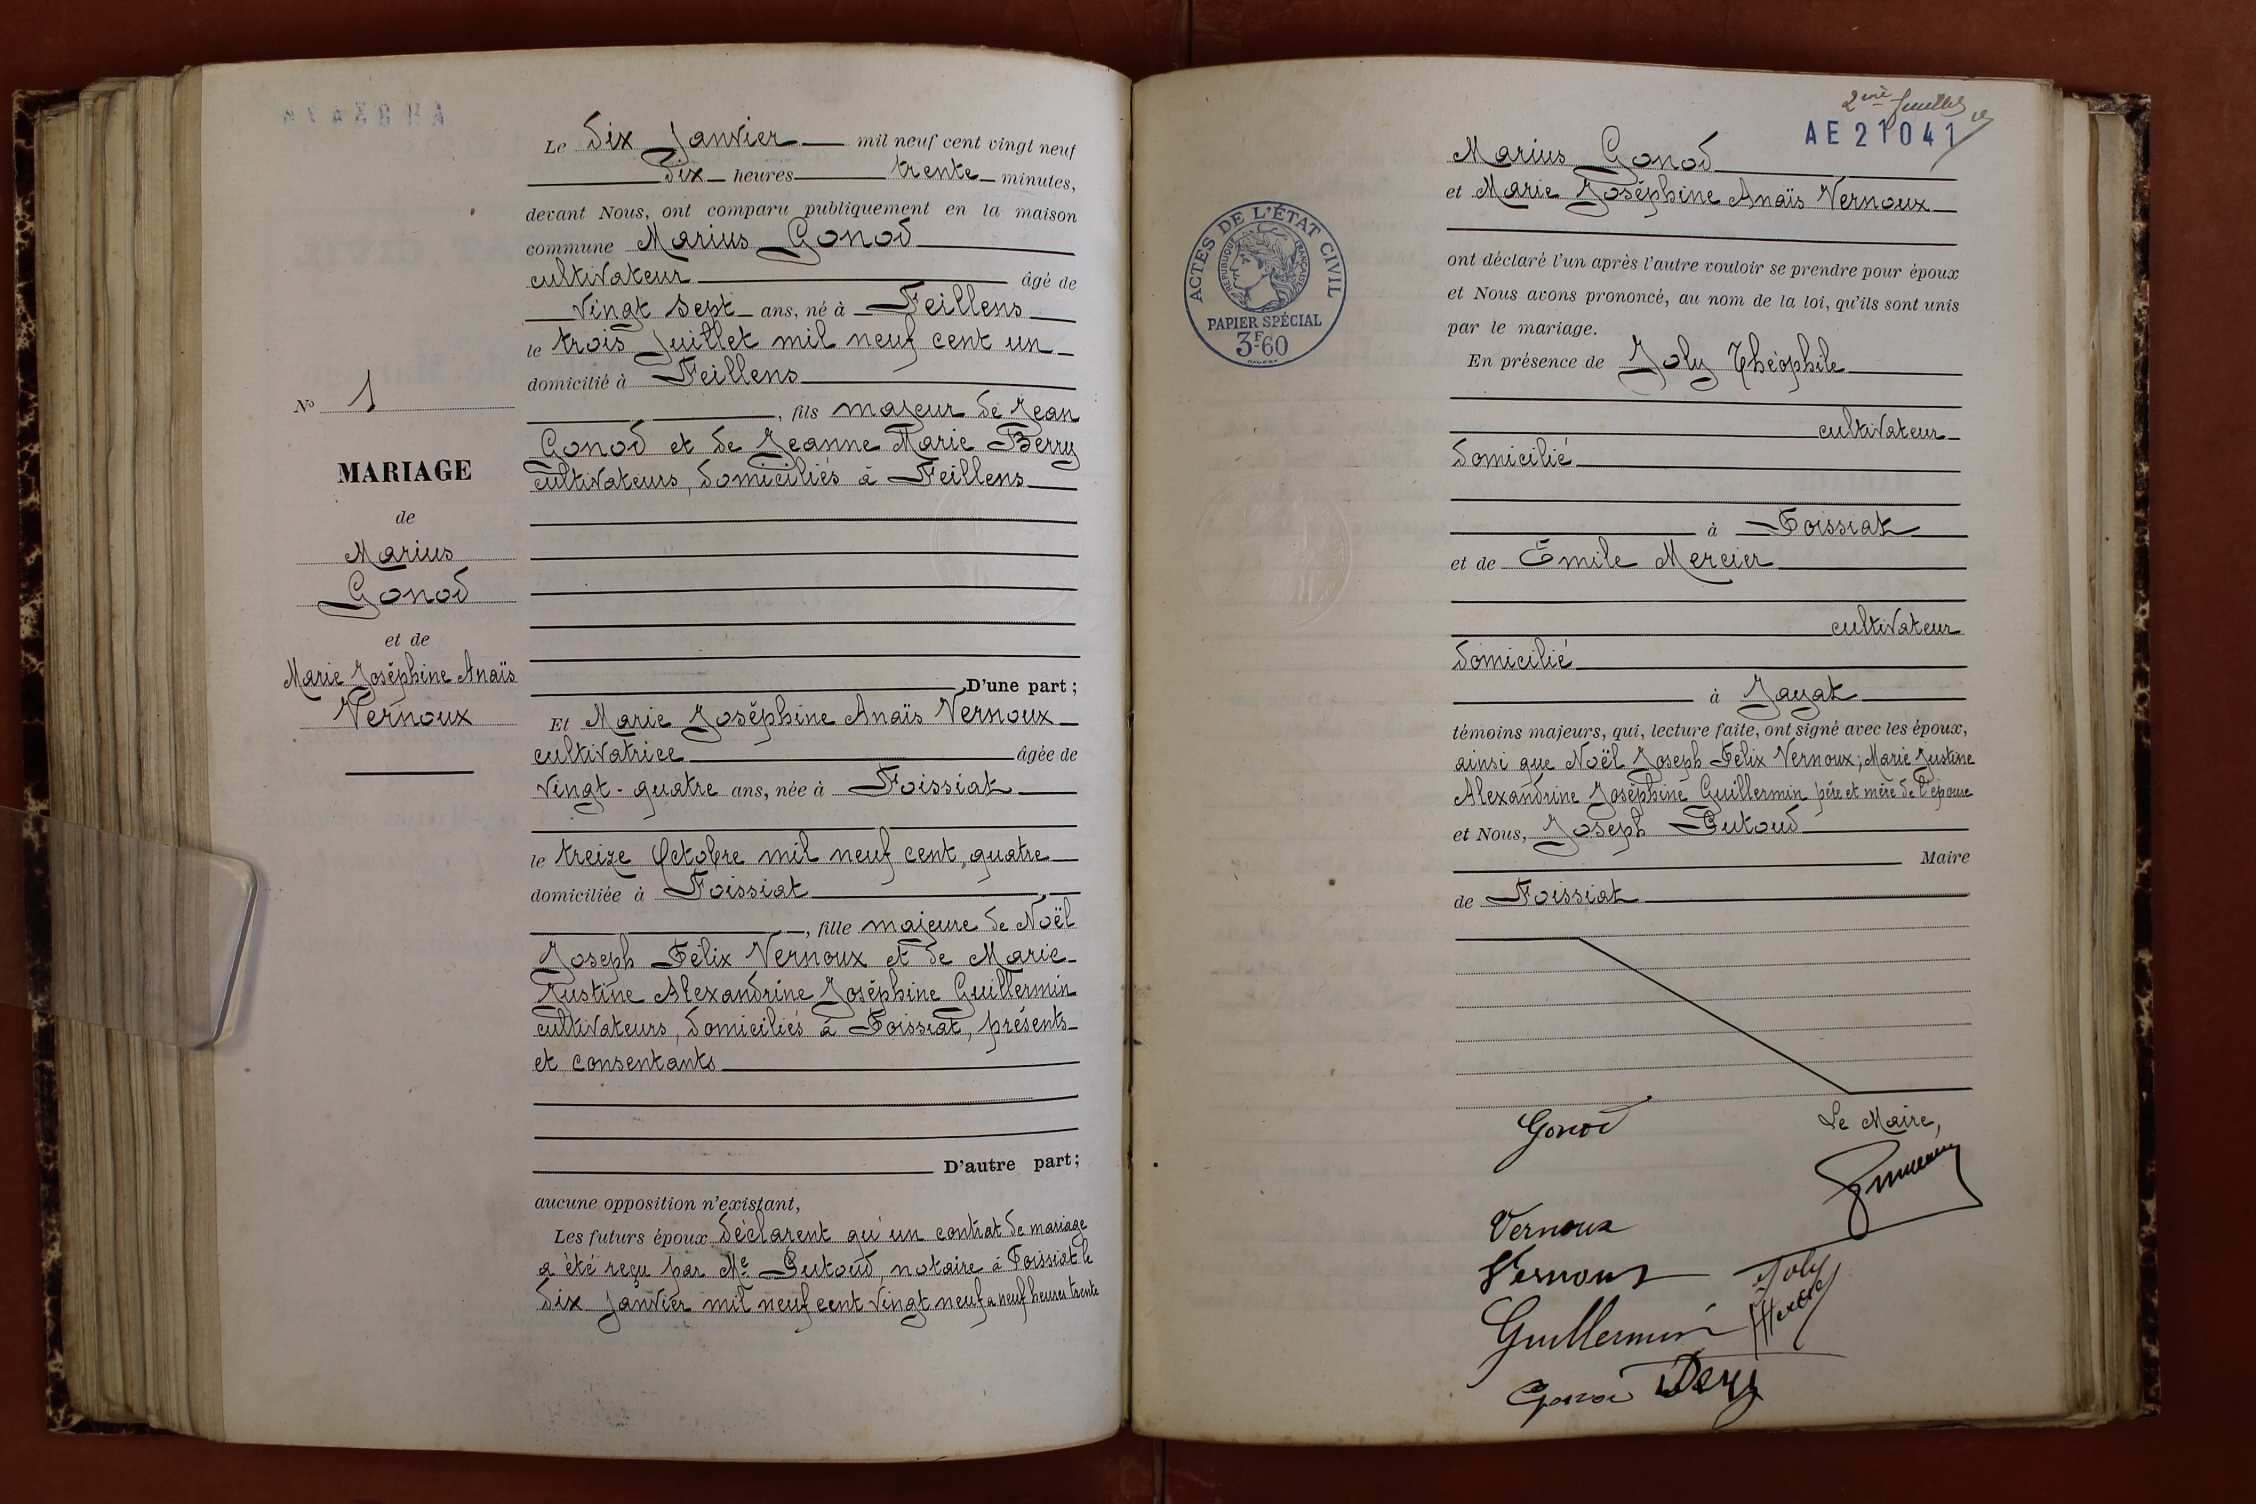 N° 1
MARIAGE
de
Marius
Gonod
et de
Marie Joséphine Anaïs
Vernoux
Le dix Janvier mil neuf cent vingt neuf
dix heures trente minutes,
devant Nous, ont comparu publiquement en la maison
commune Marius Gonod
cultivateur âgé de
vingt sept ans, né à Feillens
le trois Juillet mil neuf cent un
domicilié à Feillens
, fils majeur de Jean
Gonod et de Jeanne Marie Berry
cultivateurs, domiciliés à Feillens
D'une part ;
Et Marie Joséphine Anaïs Vernoux
cultivatrice âgée de
vingt-quatre ans, née à Foissiat
le treize Octobre mil neuf cent, quatre
domiciliée à Foissiat,
, fille majeure de Noël
Joseph Félix Vernoux et de Marie
Justine Alexandrine Joséphine Guillermin
cultivateurs, domiciliés à Foissiat, présents
et consentants
D'autre part ;
aucune opposition n'existant,
Les futurs époux déclarent qu'un contrat de mariage
a été reçu par Me Putoud, notaire à Foissiat le
dix Janvier mil neuf cent vingt neuf a neuf heures trente
2eme feuillet
AE 21041
Marius Gonod
et Marie Joséphine Anaïs Vernoux
ACTES DE L'ÉTAT CIVIL
RÉPUBLIQUE FRANÇAISE
PAPIER SPÉCIAL
3F60
ont déclaré l'un après l'autre vouloir se prendre pour époux
et Nous avons prononcé, au nom de la loi, qu'ils sont unis
par le mariage.
En présence de Joly Théophile
cultivateur
domicilié
à Foissiat
et de Emile Mercier
cultivateur
domicilié
à Jayat
témoins majeurs, qui, lecture faite, ont signé avec les époux,
ainsi que Noël Joseph Félix Vernoux ; Marie Justine
Alexandrine Joséphine Guillermin père et mère de l'épouse
et Nous, Joseph Putoud
Maire
de Foissiat
Gonod
Le Maire,
Vernoux
Vernoux
Joly
Guillermin
Gonod